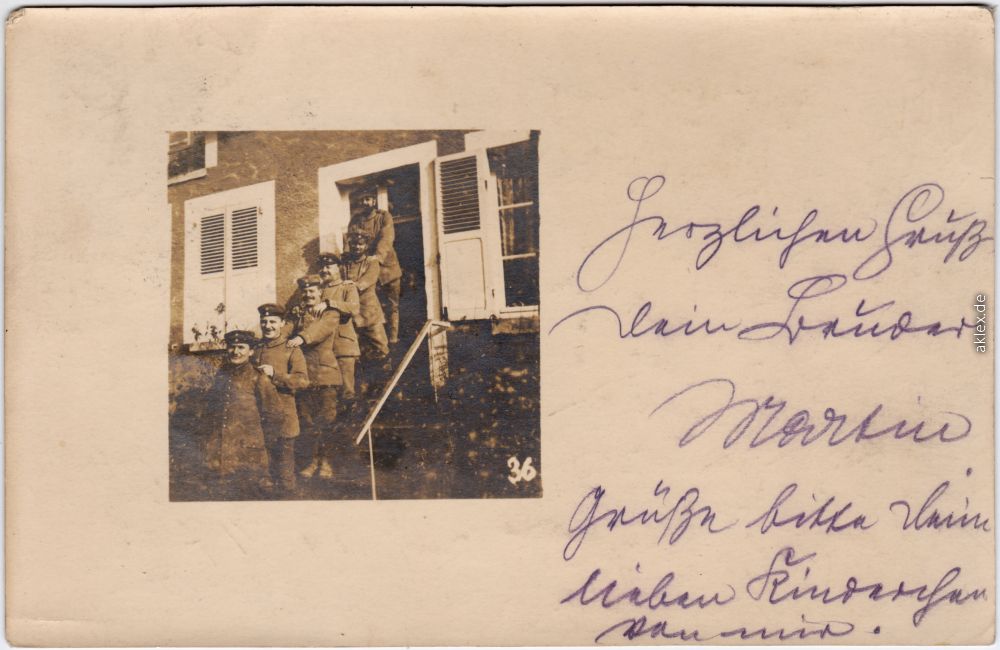 36
Herzlichen Gruß
Dein Bruder
Martin
Grüße bitte Dein
lieben Kinderchen
von mir.
aklex.de